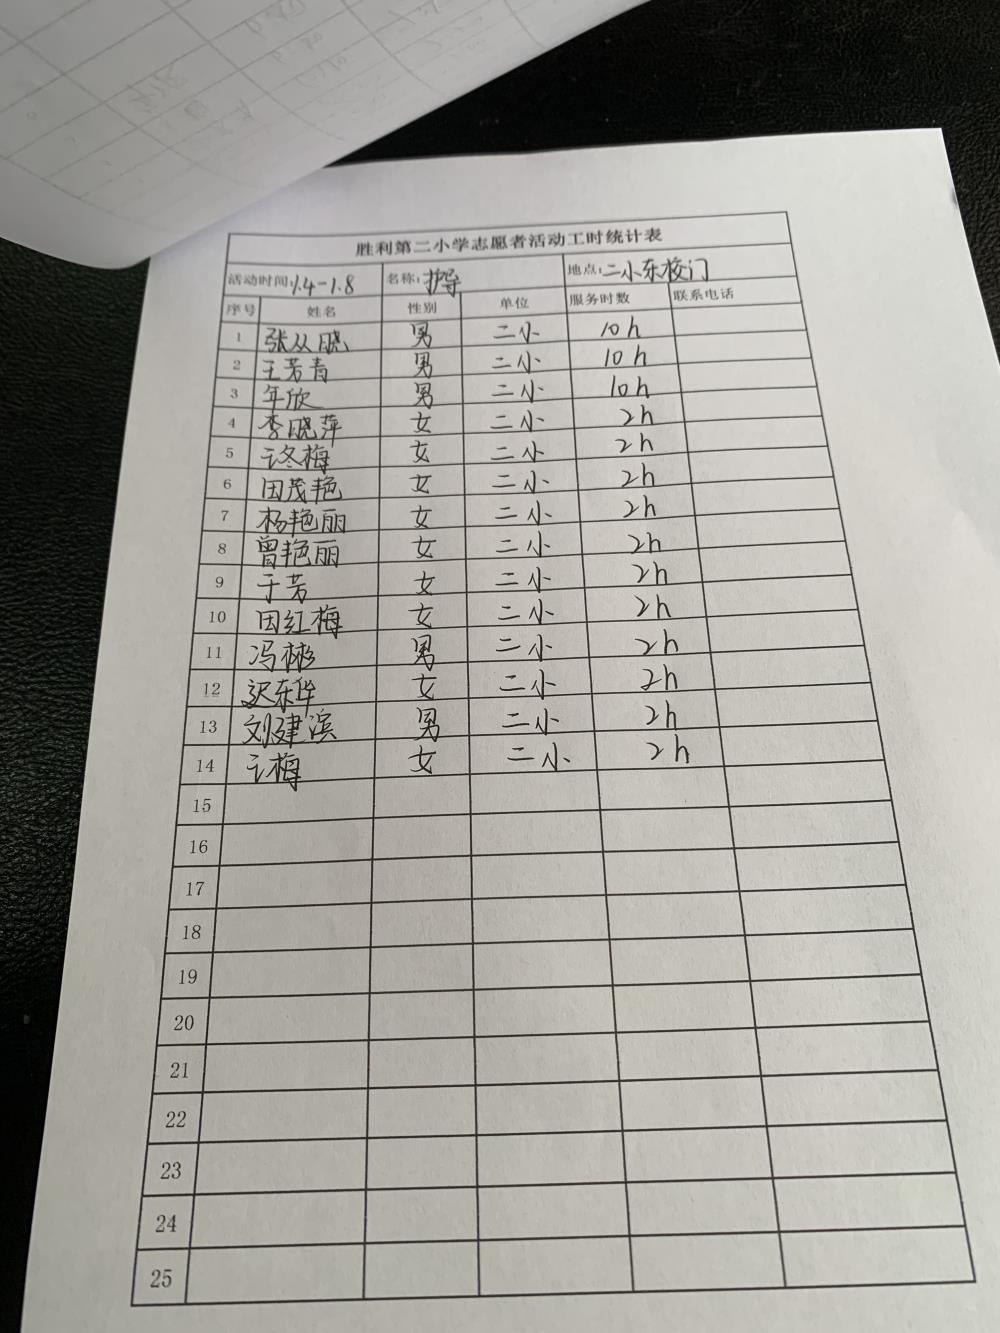 胜利第二小学志愿者活动工时统计表
活动时间:1.4-1.8 名称:护导 地点:二小东校门
序号 姓名 性别 单位 服务时数 联系电话
1 张从晓 男 二小 10h
2 王芳青 男 二小 10h
3 年欣 男 二小 10h
4 李晓萍 女 二小 2h
5 冬梅 女 二小 2h
6 田茂艳 女 二小 2h
7 杨艳丽 女 二小 2h
8 曾艳丽 女 二小 2h
9 于芳 女 二小 2h
10 田红梅 女 二小 2h
11 冯彬 男 二小 2h
12 迟东华 女 二小 2h
13 刘建滨 男 二小 2h
14 梅 女 二小 2h
15
16
17
18
19
20
21
22
23
24
25